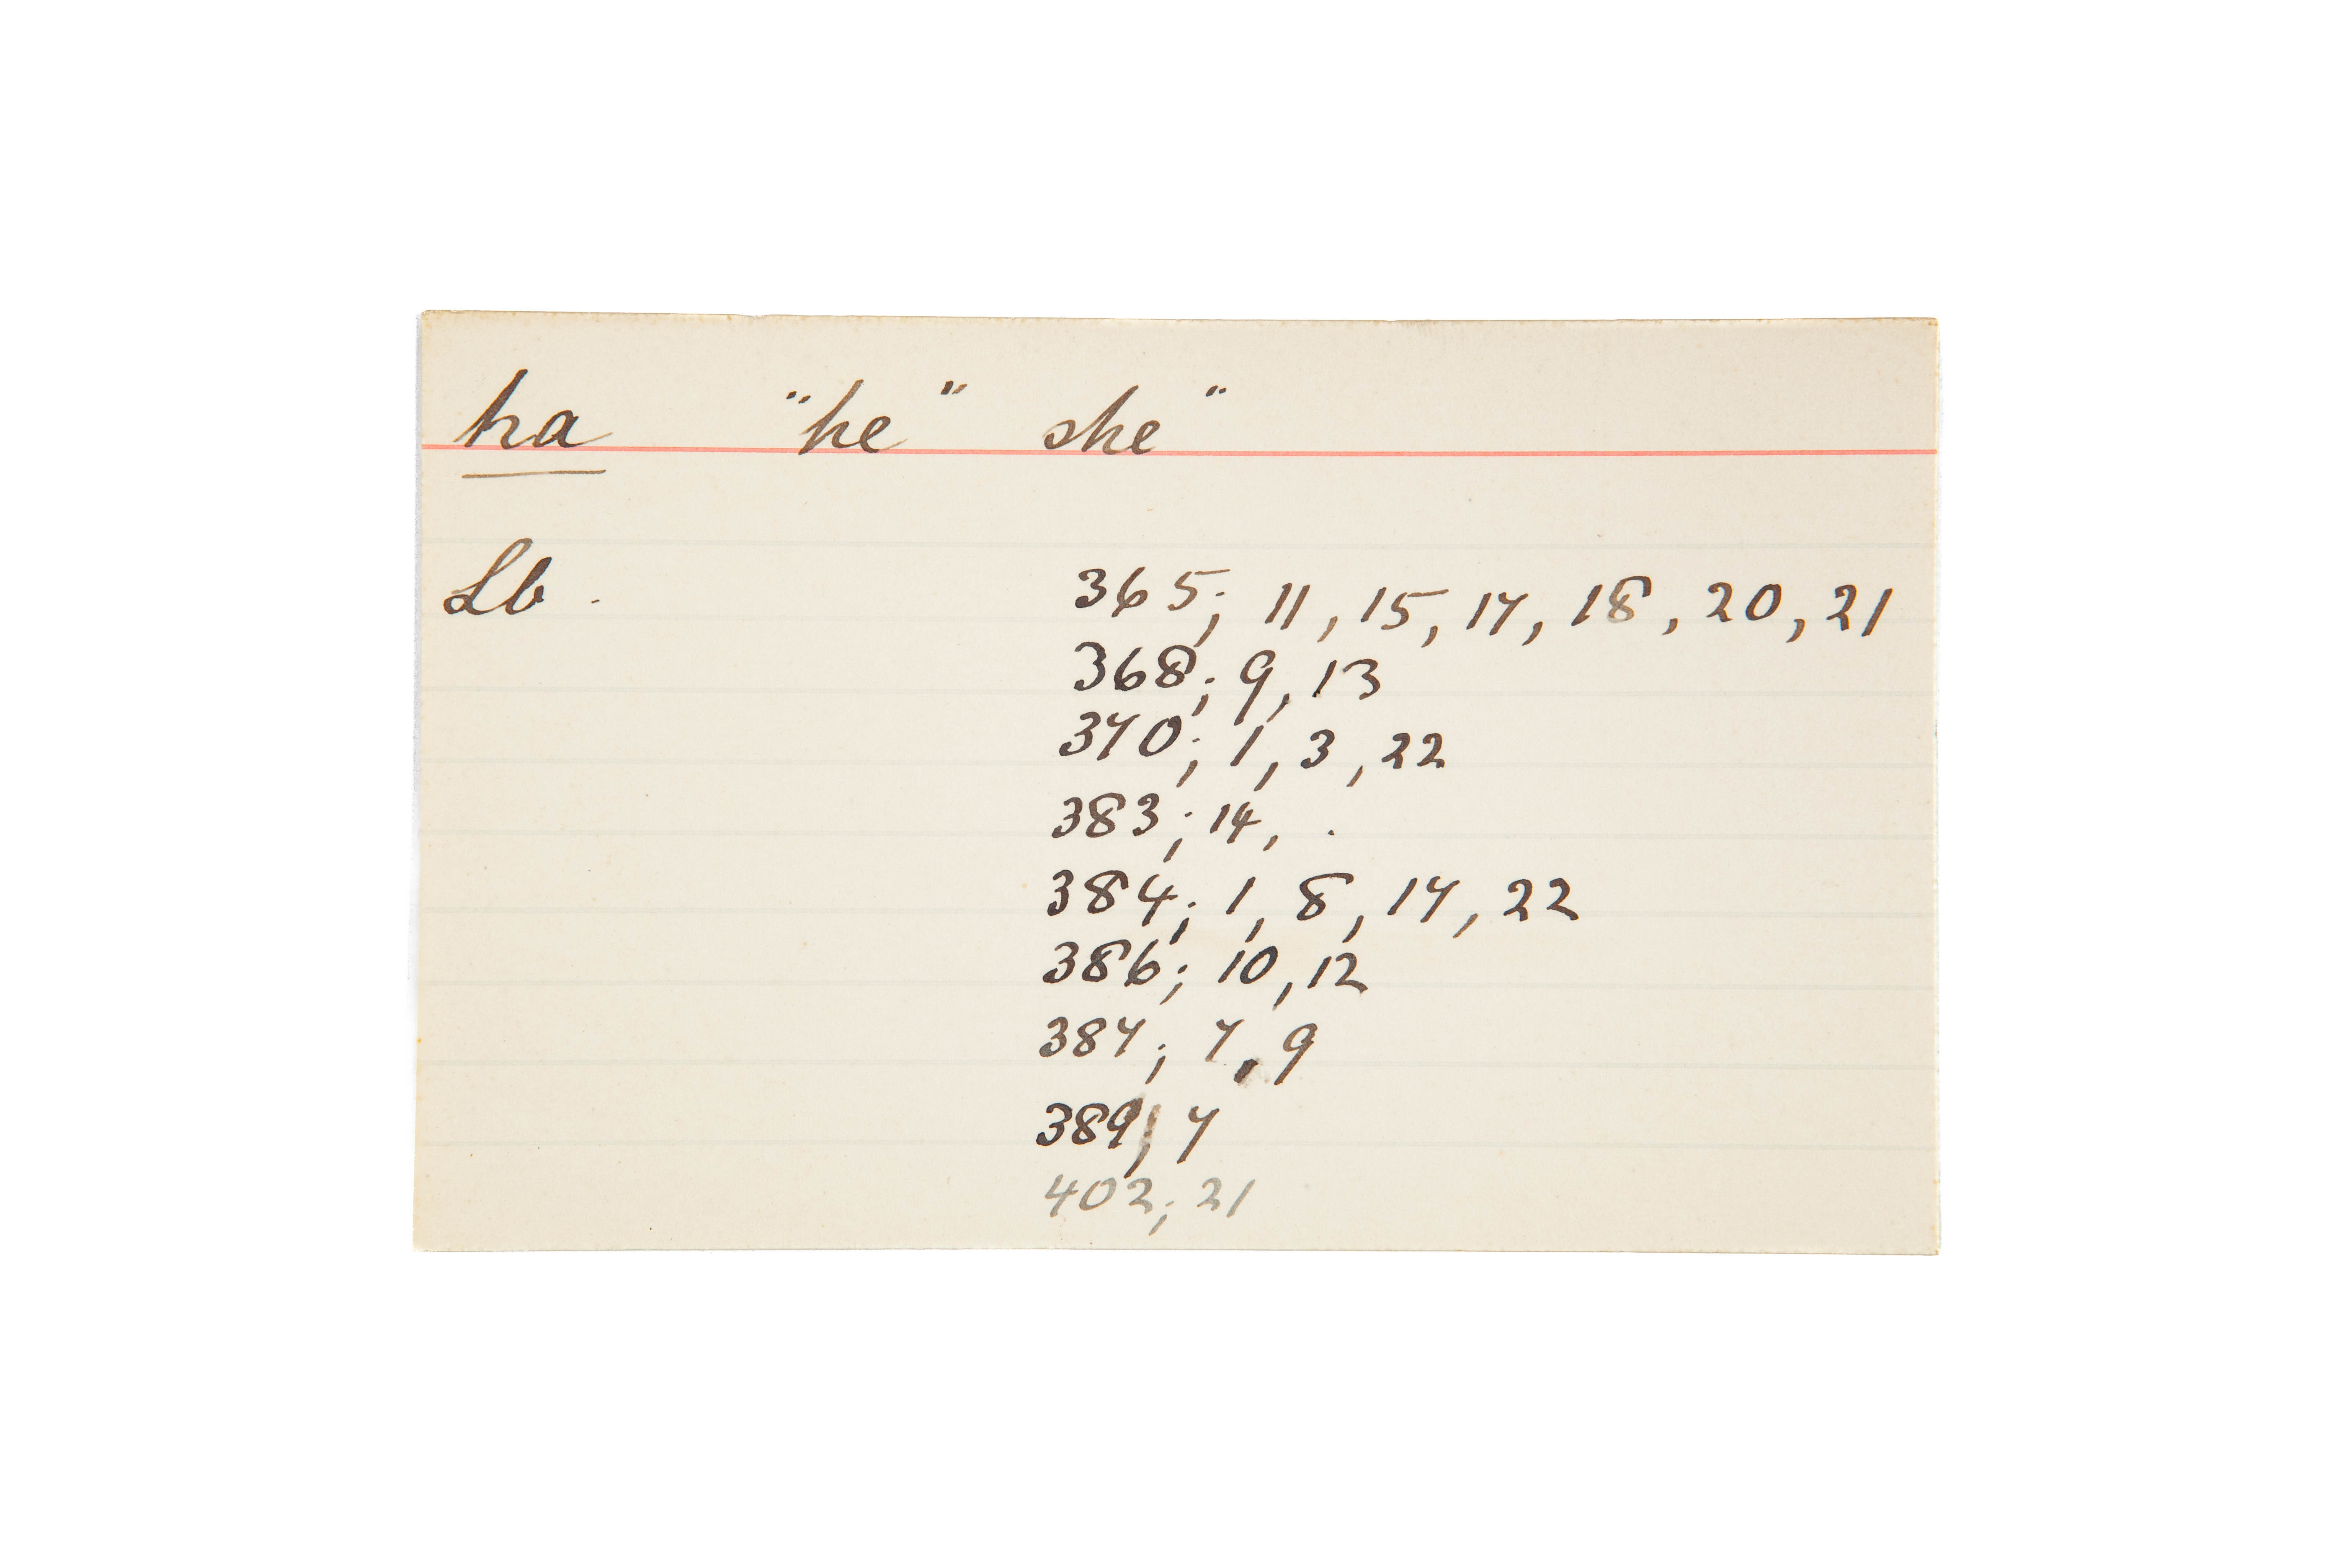 ha "he" she"
Lb. 365; 11, 15, 17, 18, 20, 21
368; 9, 13
370; 1, 3, 22
383; 14, .
384; 1, 8, 17, 22
386; 10, 12
387; 7, 9
389; 7
402; 21